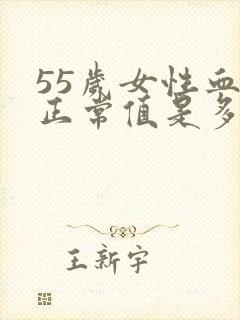 55岁女性血
正常值是多
王新宇